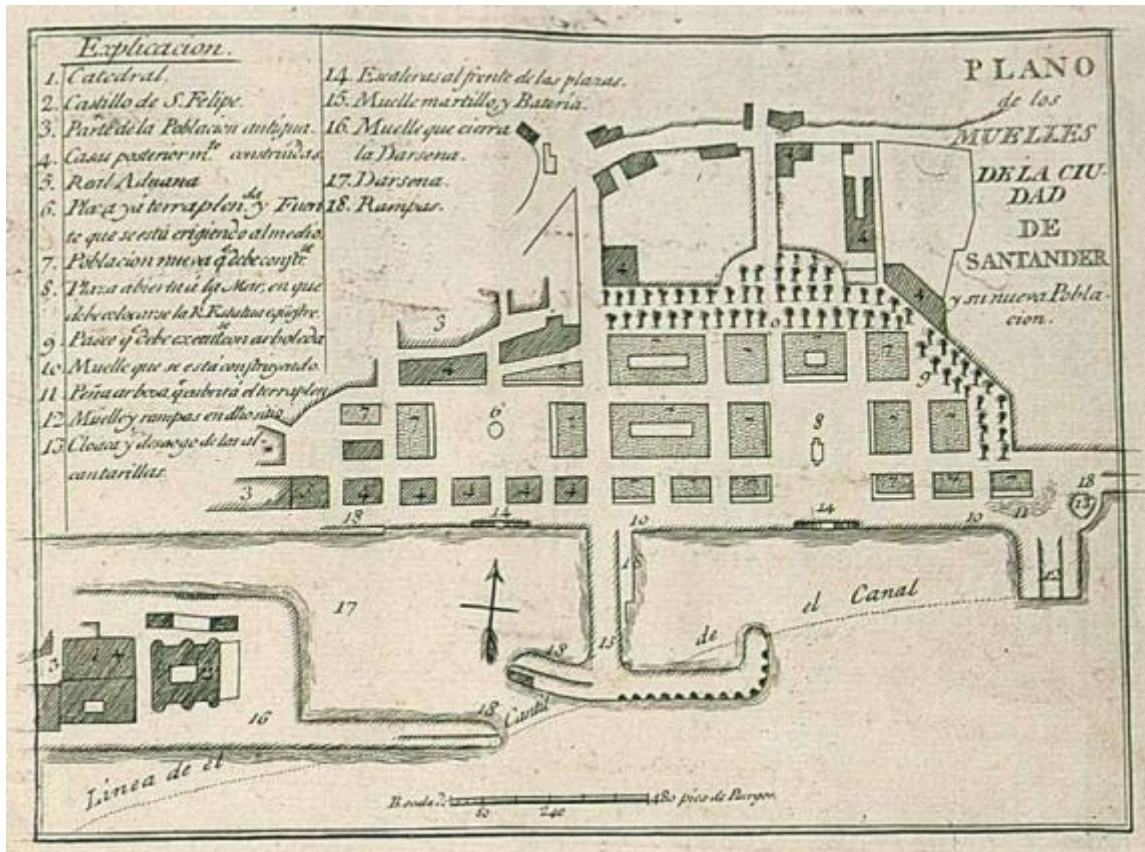 Explicacion.
1. Catedral.
2. Castillo de S. Felipe.
3. Parte de la Poblacion antigua.
4. Casas posterior m.te construidas.
5. Real Aduana
6. Plaza ya terraplen.da y Fuen
te que se está erigiendo al medio.
7. Poblacion nueva q.e debe constr.se
8. Plaza abierta á la Mar, en que
debe colocarse la R. Estatua eqüestre.
9. Paseo q.e debe con arboleda
10. Muelle que se está construyendo.
11. Peña q.e cubrirá el terraplen
12. Muelle y rampas en dho sitio
13. Cloaca y desaogo de las al-
cantarillas.
14. Escaleras al frente de las plazas.
15. Muelle martillo, y Bateria.
16. Muelle que cierra
la Dársena.
17. Darsena.
18. Rampas.
PLANO
de los
MUELLES
DE LA CIU-
DAD
DE
SANTANDER
y su nueva Pobla-
cion.
4
4
4
4
3
9
4
7
7
9
7
7
6
7
8
3
4
4
4
4
4
18
13
11
13
14
10
14
10
12
18
17
15
el Canal
de
18
3
2
16
18
Cantil
Linea de el
480 pies de Burgos.
240